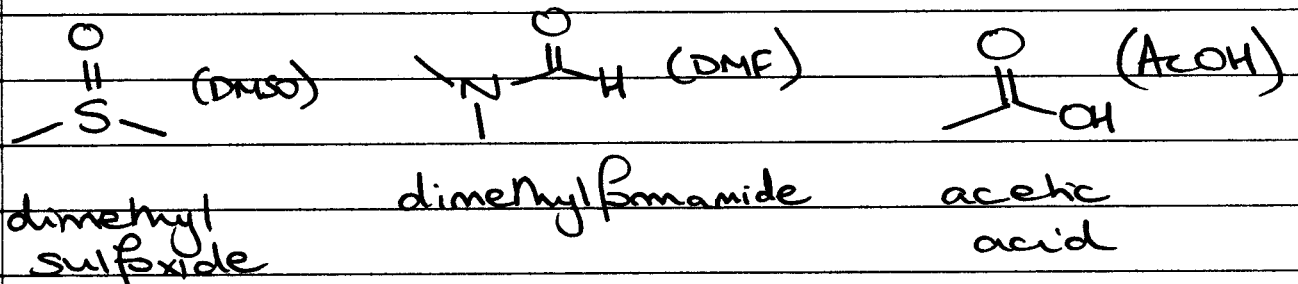 O
S (DMSO)
O
N H (DMF)
O
OH (AcOH)
dimethyl
sulfoxide
dimethylformamide
acetic
acid